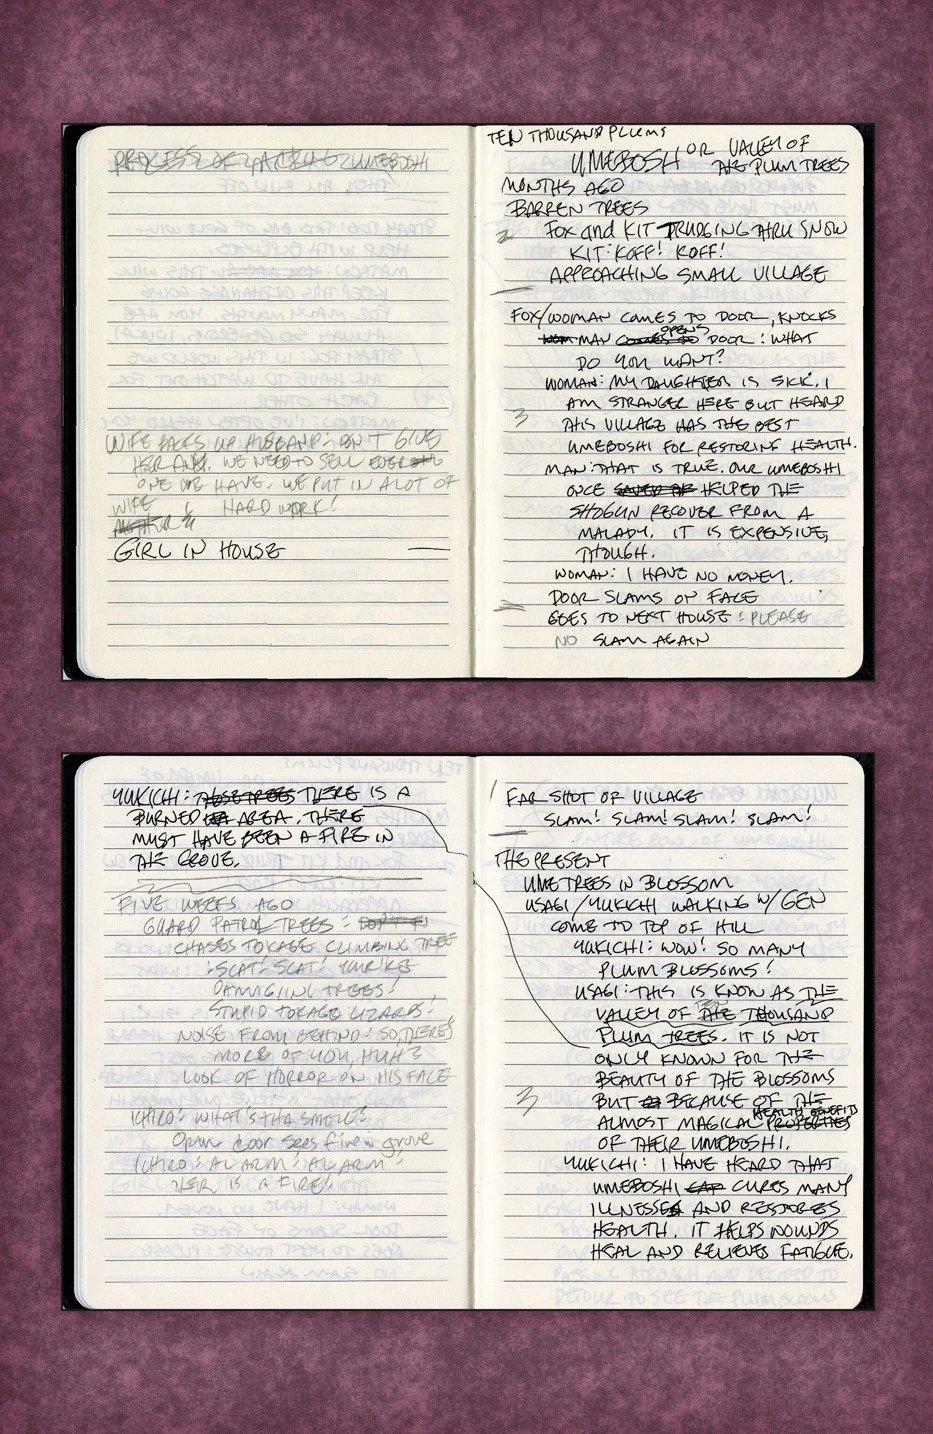 PROCESS OF MAKING UMEBOSHI
WIFE BACKS UP HUSBAND: DON'T GIVE
HER ANY. WE NEED TO SELL EVERY
ONE WE HAVE. WE PUT IN A LOT OF
WIFE HARD WORK!
GIRL IN HOUSE
TEN THOUSAND PLUMS
UMEBOSHI OR VALLEY OF
THE PLUM TREES
MONTHS AGO
BARREN TREES
2 FOX and KIT TRUDGING THRU SNOW
KIT: KOFF! KOFF!
APPROACHING SMALL VILLAGE
FOX/WOMAN COMES TO DOOR, KNOCKS
MAN COMES TO OPENS DOOR: WHAT
DO YOU WANT?
WOMAN: MY DAUGHTER IS SICK. I
AM STRANGER HERE BUT HEARD
3 THIS VILLAGE HAS THE BEST
UMEBOSHI FOR RESTORING HEALTH.
MAN: THAT IS TRUE. OUR UMEBOSHI
ONCE SAVED THE HELPED THE
SHOGUN RECOVER FROM A
MALADY. IT IS EXPENSIVE,
THOUGH.
WOMAN: I HAVE NO MONEY.
DOOR SLAMS ON FACE
GOES TO NEXT HOUSE: PLEASE
NO SLAM AGAIN
YUKICHI: THOSE TREES THERE IS A
BURNED AREA. THERE
MUST HAVE BEEN A FIRE IN
THE GROVE.
FIVE WEEKS AGO
GUARD PATROL TREES: DON'T
CHASES TOKAGE CLIMBING TREE
: SCAT! SCAT! YOU'RE
DAMAGIING TREES!
STUPID TOKAGE LIZARDS!
NOISE FROM BEHIND: SO, THERE'S
MORE OF YOU, HUH?
LOOK OF HORROR ON HIS FACE
ICHIRO: WHAT'S THA SMOKE?
Open door sees fire in grove
ICHIRO: ALARM! ALARM!
THER IS A FIRE!
1 FAR SHOT OF VILLAGE
SLAM! SLAM! SLAM! SLAM!
THE PRESENT
UME TREES IN BLOSSOM
USAGI/YUKICHI WALKING W/GEN
COME TO TOP OF HILL
YUKICHI: WOW! SO MANY
PLUM BLOSSOMS!
USAGI: THIS IS KNOW AS THE
VALLEY OF THE TEN THOUSAND
PLUM TREES. IT IS NOT
ONLY KNOWN FOR THE
BEAUTY OF THE BLOSSOMS
3 BUT BECAUSE OF THE
ALMOST MAGICAL PROPERTIES HEALTH BENEFITS
OF THEIR UMEBOSHI.
YUKICHI: I HAVE HEARD THAT
UMEBOSHI CAN CURES MANY
ILLNESSES AND RESTORES
HEALTH. IT HELPS WOUNDS
HEAL AND RELIEVES FATIGUE.